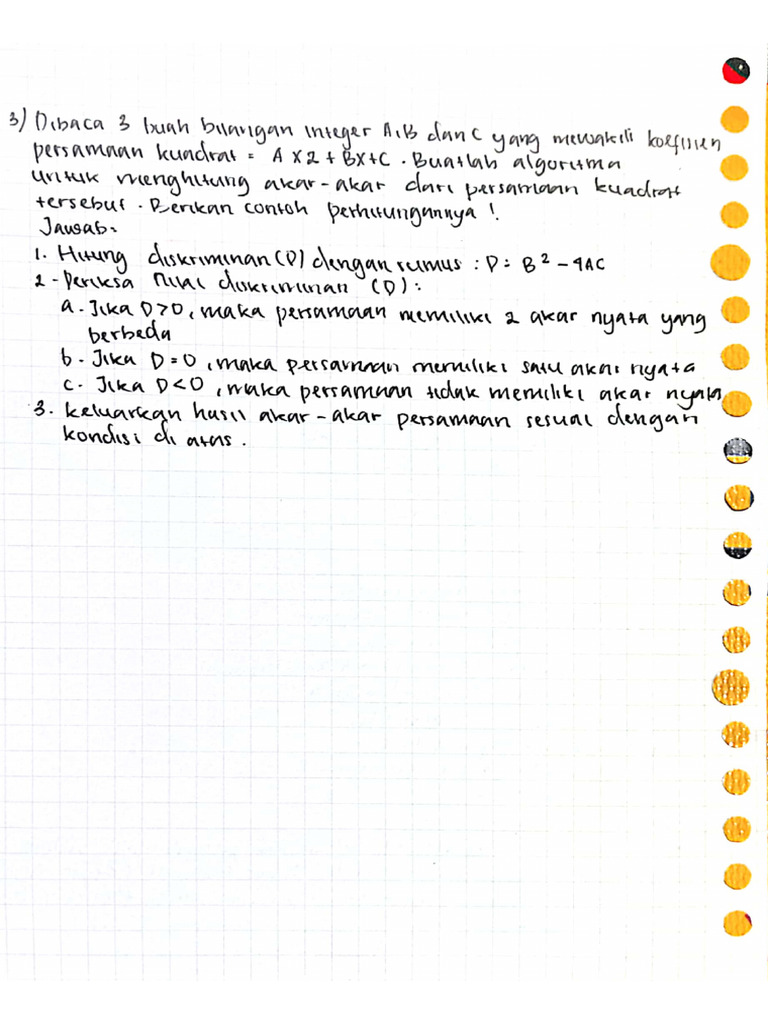 3) Dibaca 3 buah bilangan integer A,B dan C yang mewakili koefisien
persamaan kuadrat = A X 2 + BX+C. Buatlah algoritma
untuk menghitung akar-akar dari persamaan kuadrat
tersebut. Berikan contoh perhitungannya !
Jawab.
1. Hitung diskriminan (D) dengan rumus : D = B² - 4AC
2 - Periksa nilai diskriminan (D) :
a. Jika D>0, maka persamaan memiliki 2 akar nyata yang
berbeda
b. Jika D = 0, maka persamaan memiliki satu akar nyata
c. Jika D<0, maka persamaan tidak memiliki akar nyata
3. Keluarkan hasil akar-akar persamaan sesuai dengan
kondisi di atas.